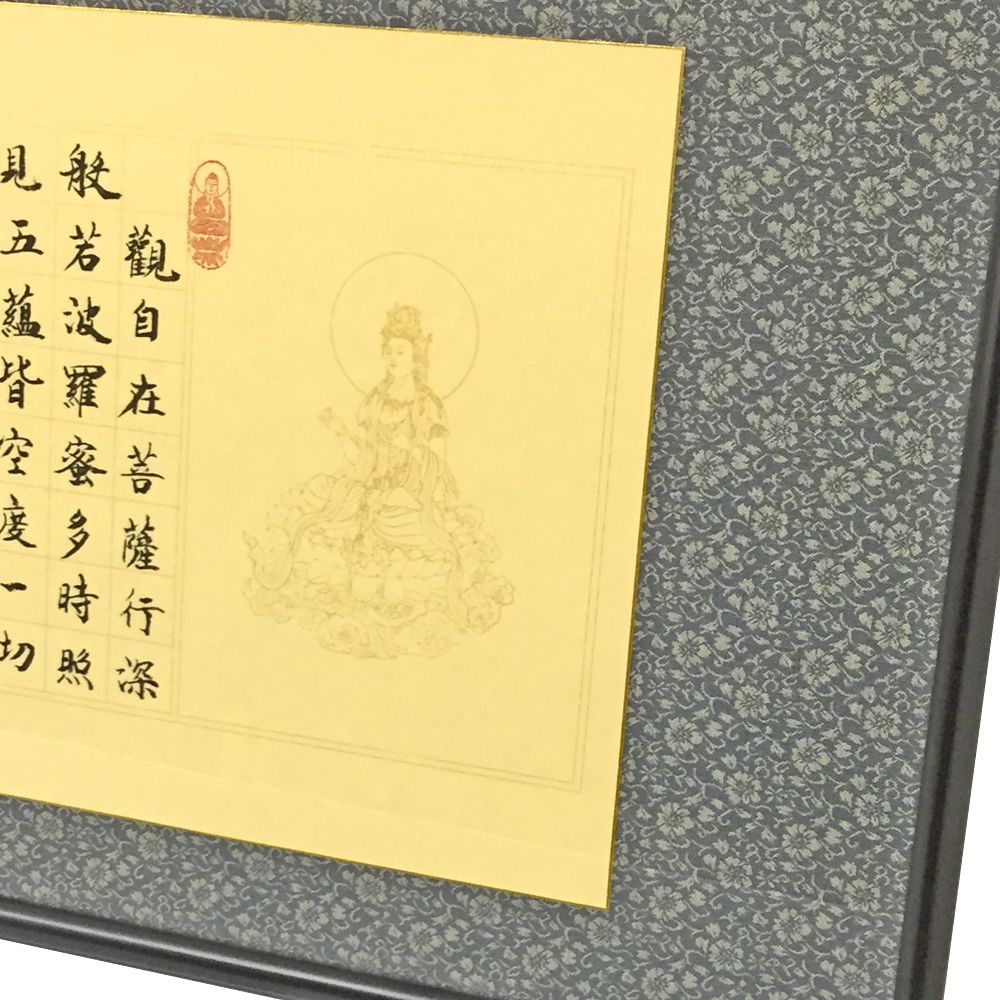 觀自在菩薩行深
般若波羅蜜多時照
見五蘊皆空度一切